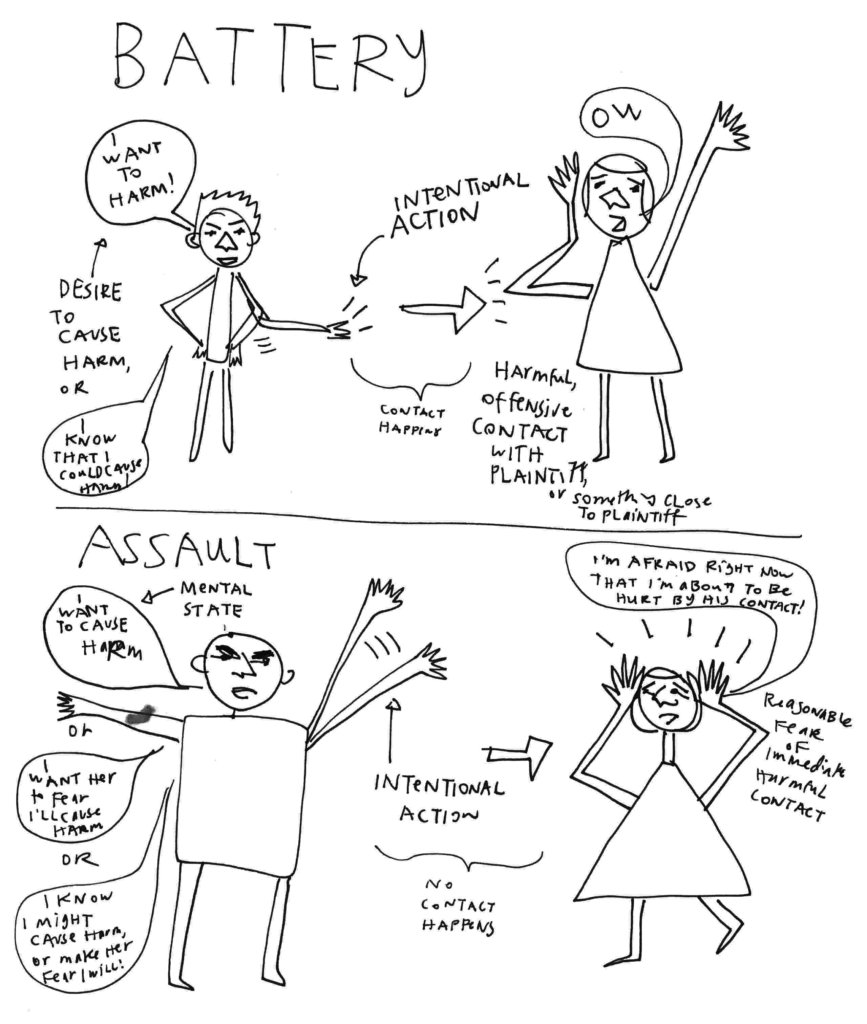 BATTERY
I
WANT
TO
HARM!
DESIRE
TO
CAUSE
HARM,
OR
I
KNOW
THAT I
COULD CAUSE
HARM!
INTENTIONAL
ACTION
CONTACT
HAPPENS
OW
HARMFUL,
OFFENSIVE
CONTACT
WITH
PLAINTIFF,
or something CLOSE
TO PLAINTIFF
ASSAULT
I
WANT
TO CAUSE
HARM
MENTAL
STATE
Or
I
WANT Her
to Fear
I'LL CAUSE
HARM
OR
I KNOW
I MIGHT
CAUSE HARM,
or make Her
Fear I will!
INTENTIONAL
ACTION
NO
CONTACT
HAPPENS
I'M AFRAID RIGHT NOW
THAT I'M ABOUT TO BE
HURT BY HIS CONTACT!
REASONABLE
FEAR
OF
Immediate
Harmful
CONTACT